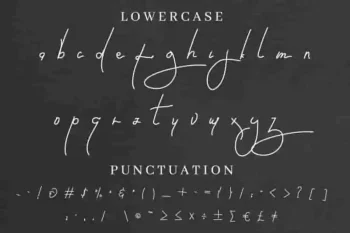 LOWERCASE
a b c d e f g h i j k l m n
o p q r s t u v w x y z
PUNCTUATION
/ @ # $ % & ( ) _ + - = { } / < > ? [ ]
/ \ ≥ ≤ × ÷ ± ∑ € £